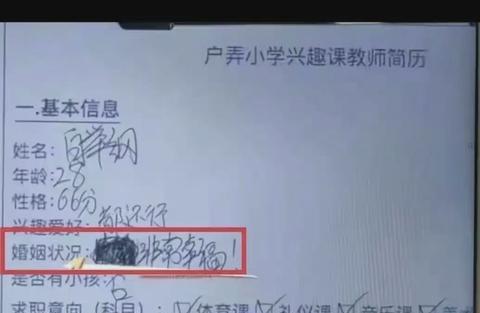 户弄小学兴趣课教师简历
一.基本信息
姓名:白举纲
年龄:28
性格:66分
兴趣爱好:都还行
婚姻状况:非常幸福!
是否有小孩:否
求职意向(科目) 体育课 礼仪课 音乐课 美术